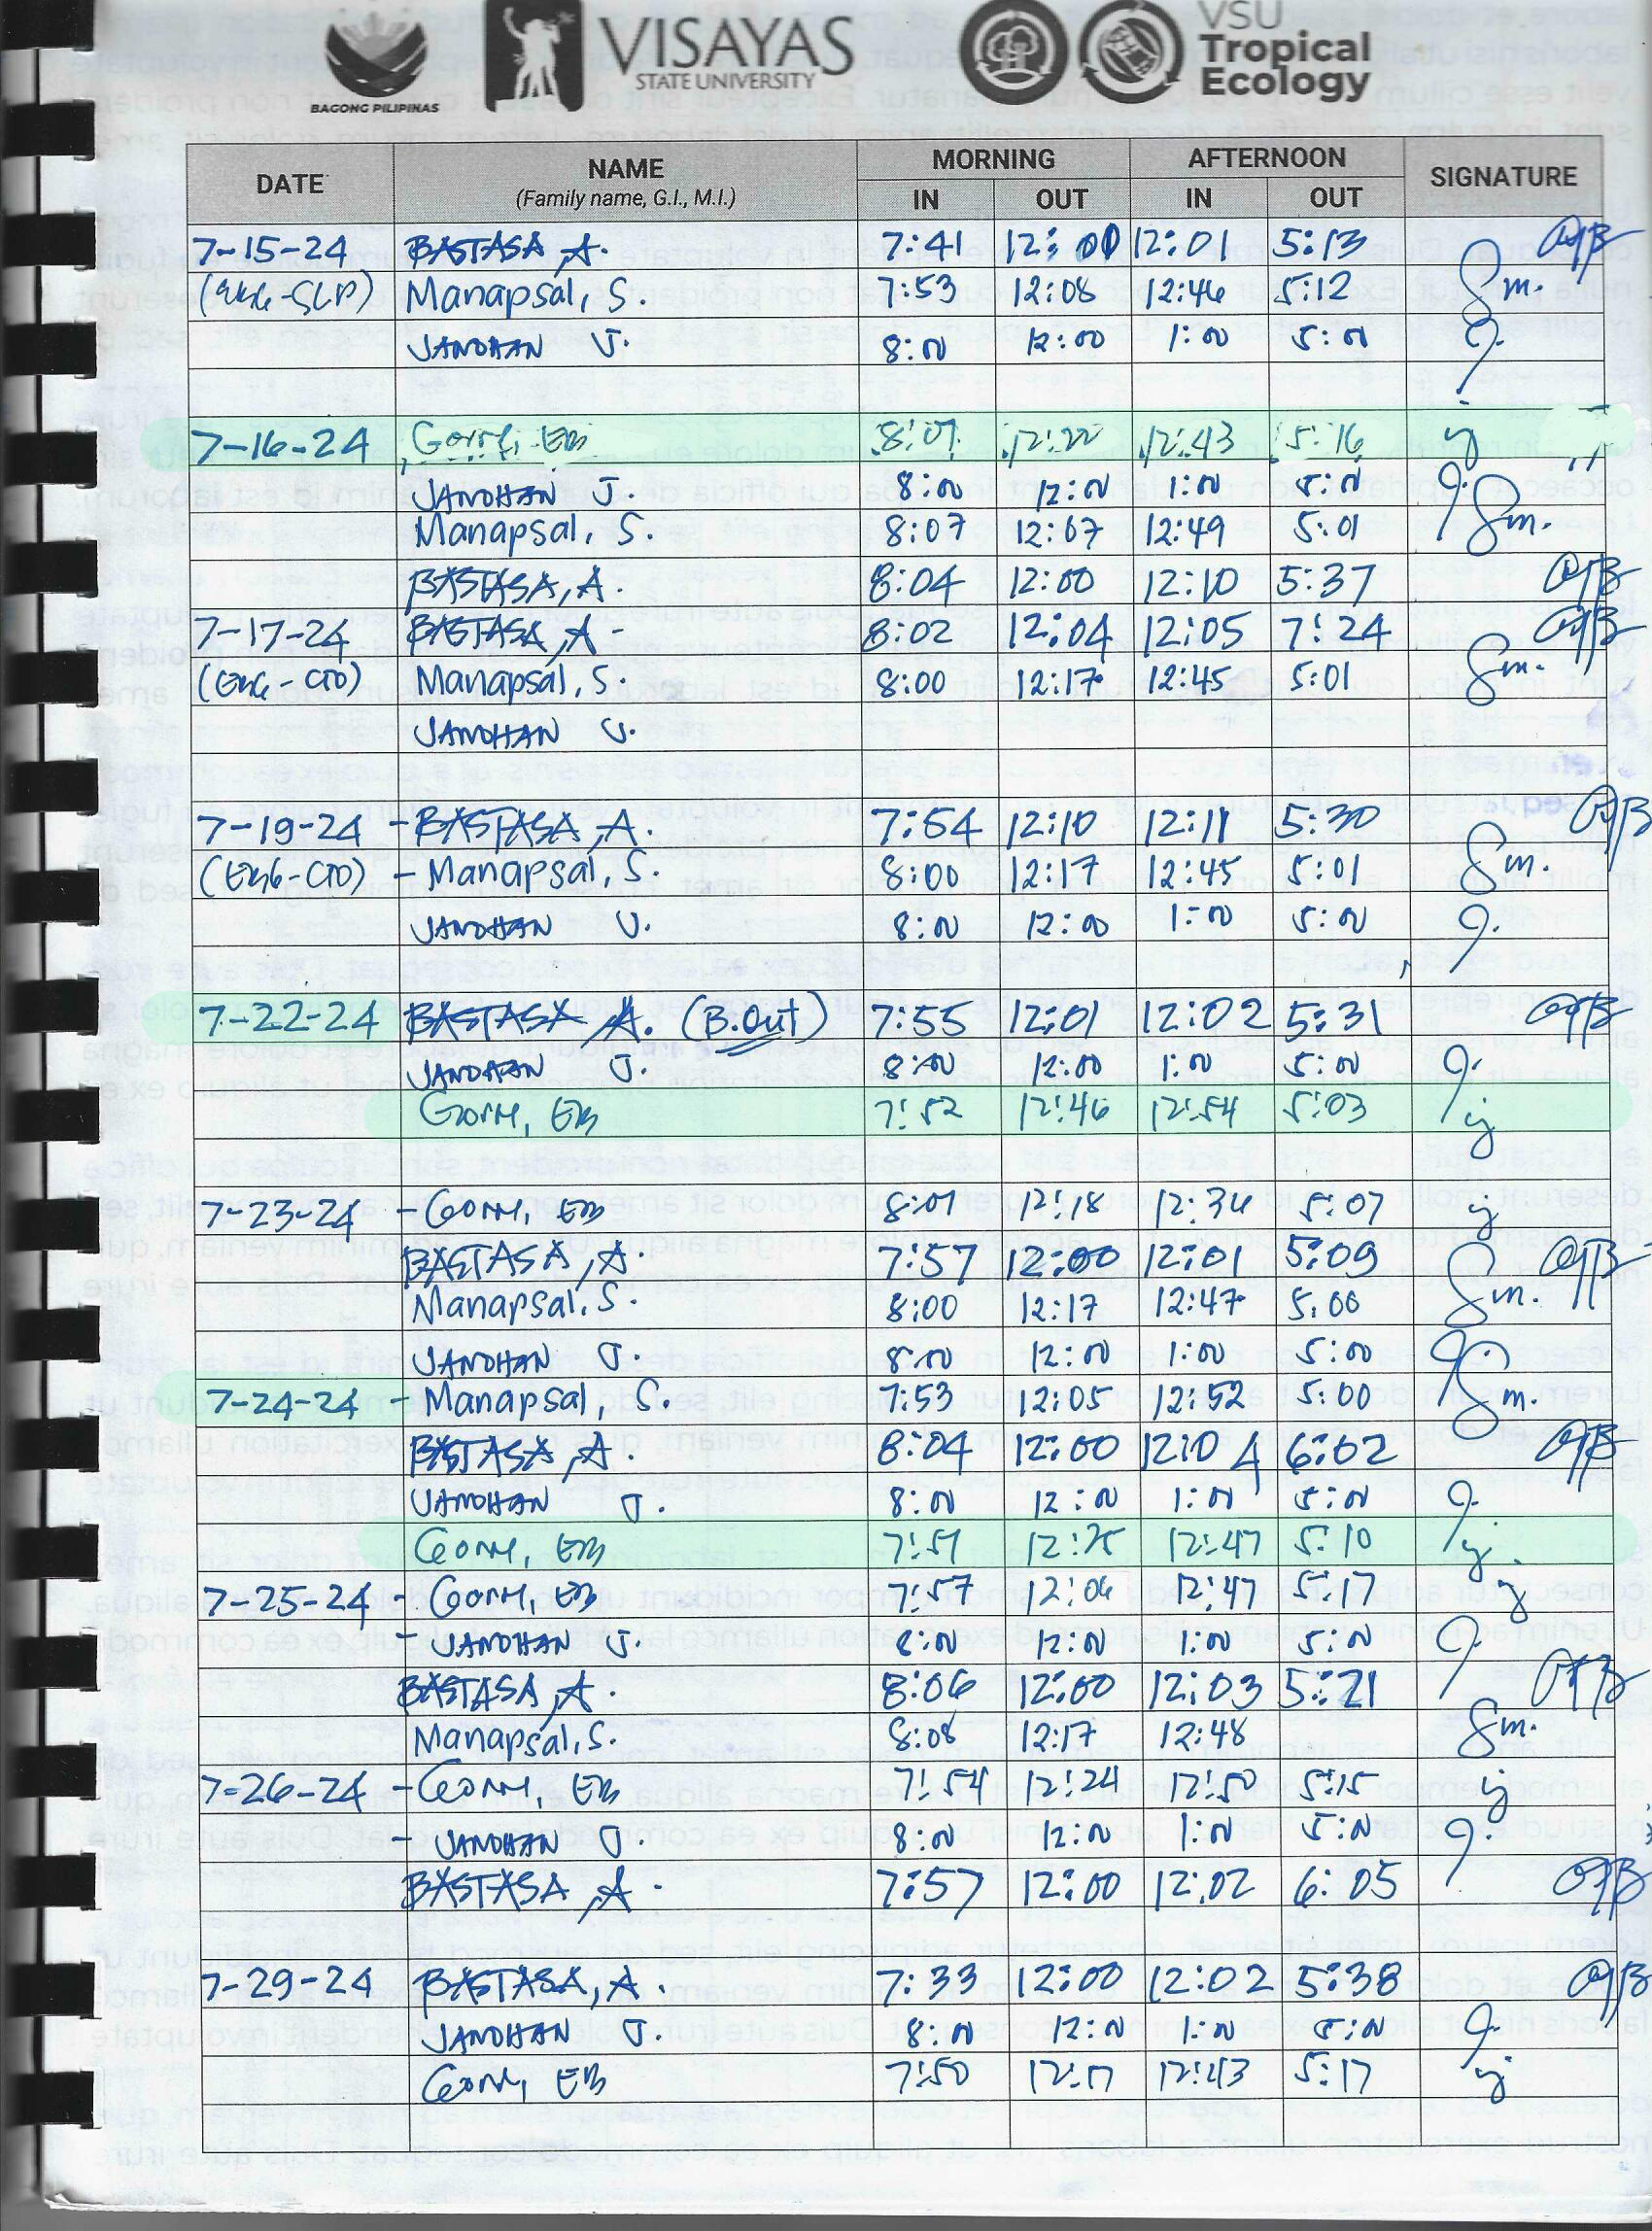 BAGONG PILIPINAS
VISAYAS
STATE UNIVERSITY
VSU
Tropical
Ecology
DATE NAME MORNING AFTERNOON SIGNATURE
(Family name, G.I., M.I.) IN OUT IN OUT
7-15-24 BASTASA, A. 7:41 12:00 12:01 5:13
Manapsal, S. 7:53 12:08 12:46 5:12 Sm.
JANDHAN J. 8:00 12:00 1:00 5:00
7-16-24 12:22 12:43 5:16
JANDHAN J. 8:00 12:00 1:00 5:00
Manapsal, S. 8:07 12:07 12:49 5:01 Sm.
BASTASA, A. 8:04 12:00 12:10 5:37
7-17-24 BASTASA, A - 8:02 12:04 12:05 7:24
Manapsal, S. 8:00 12:17 12:45 5:01 Sm.
JANDHAN J.
7-19-24 - BASTASA, A. 7:54 12:10 12:11 5:30
- Manapsal, S. 8:00 12:17 12:45 5:01 Sm.
JANDHAN J. 8:00 12:00 1:00 5:00
7-22-24 BASTASA, A. (B.Out) 7:55 12:01 12:02 5:31
JANDHAN J. 8:00 12:00 1:00 5:00
7:52 12:46 12:54 5:03
7-23-24 - 12:18 12:36 5:07
BASTASA, A 7:57 12:00 12:01 5:09
Manapsal, S. 8:00 12:17 12:47 5:00 Sm.
JANDHAN J. 8:00 12:00 1:00 5:00
7-24-24 - Manapsal, S. 7:53 12:05 12:52 5:00 Sm.
BASTASA, A. 8:04 12:00 12:04 6:02
JANDHAN J. 8:00 12:00 1:00 5:00
12:47 5:10
7-25-24 - 7:57 12:06 12:47 5:17
- JANDHAN J. 8:00 12:00 1:00 5:00
BASTASA, A. 8:06 12:00 12:03 5:21
Manapsal, S. 8:08 12:17 12:48 Sm.
7-26-24 - 7:54 12:24 12:50 5:15
- JANDHAN J. 8:00 12:00 1:00 5:00
BASTASA, A. 7:57 12:00 12:02 6:05
7-29-24 BASTASA, A. 7:33 12:00 12:02 5:38
JANDHAN J 8:00 12:00 1:00 5:00
7:50 12:17 12:43 5:17